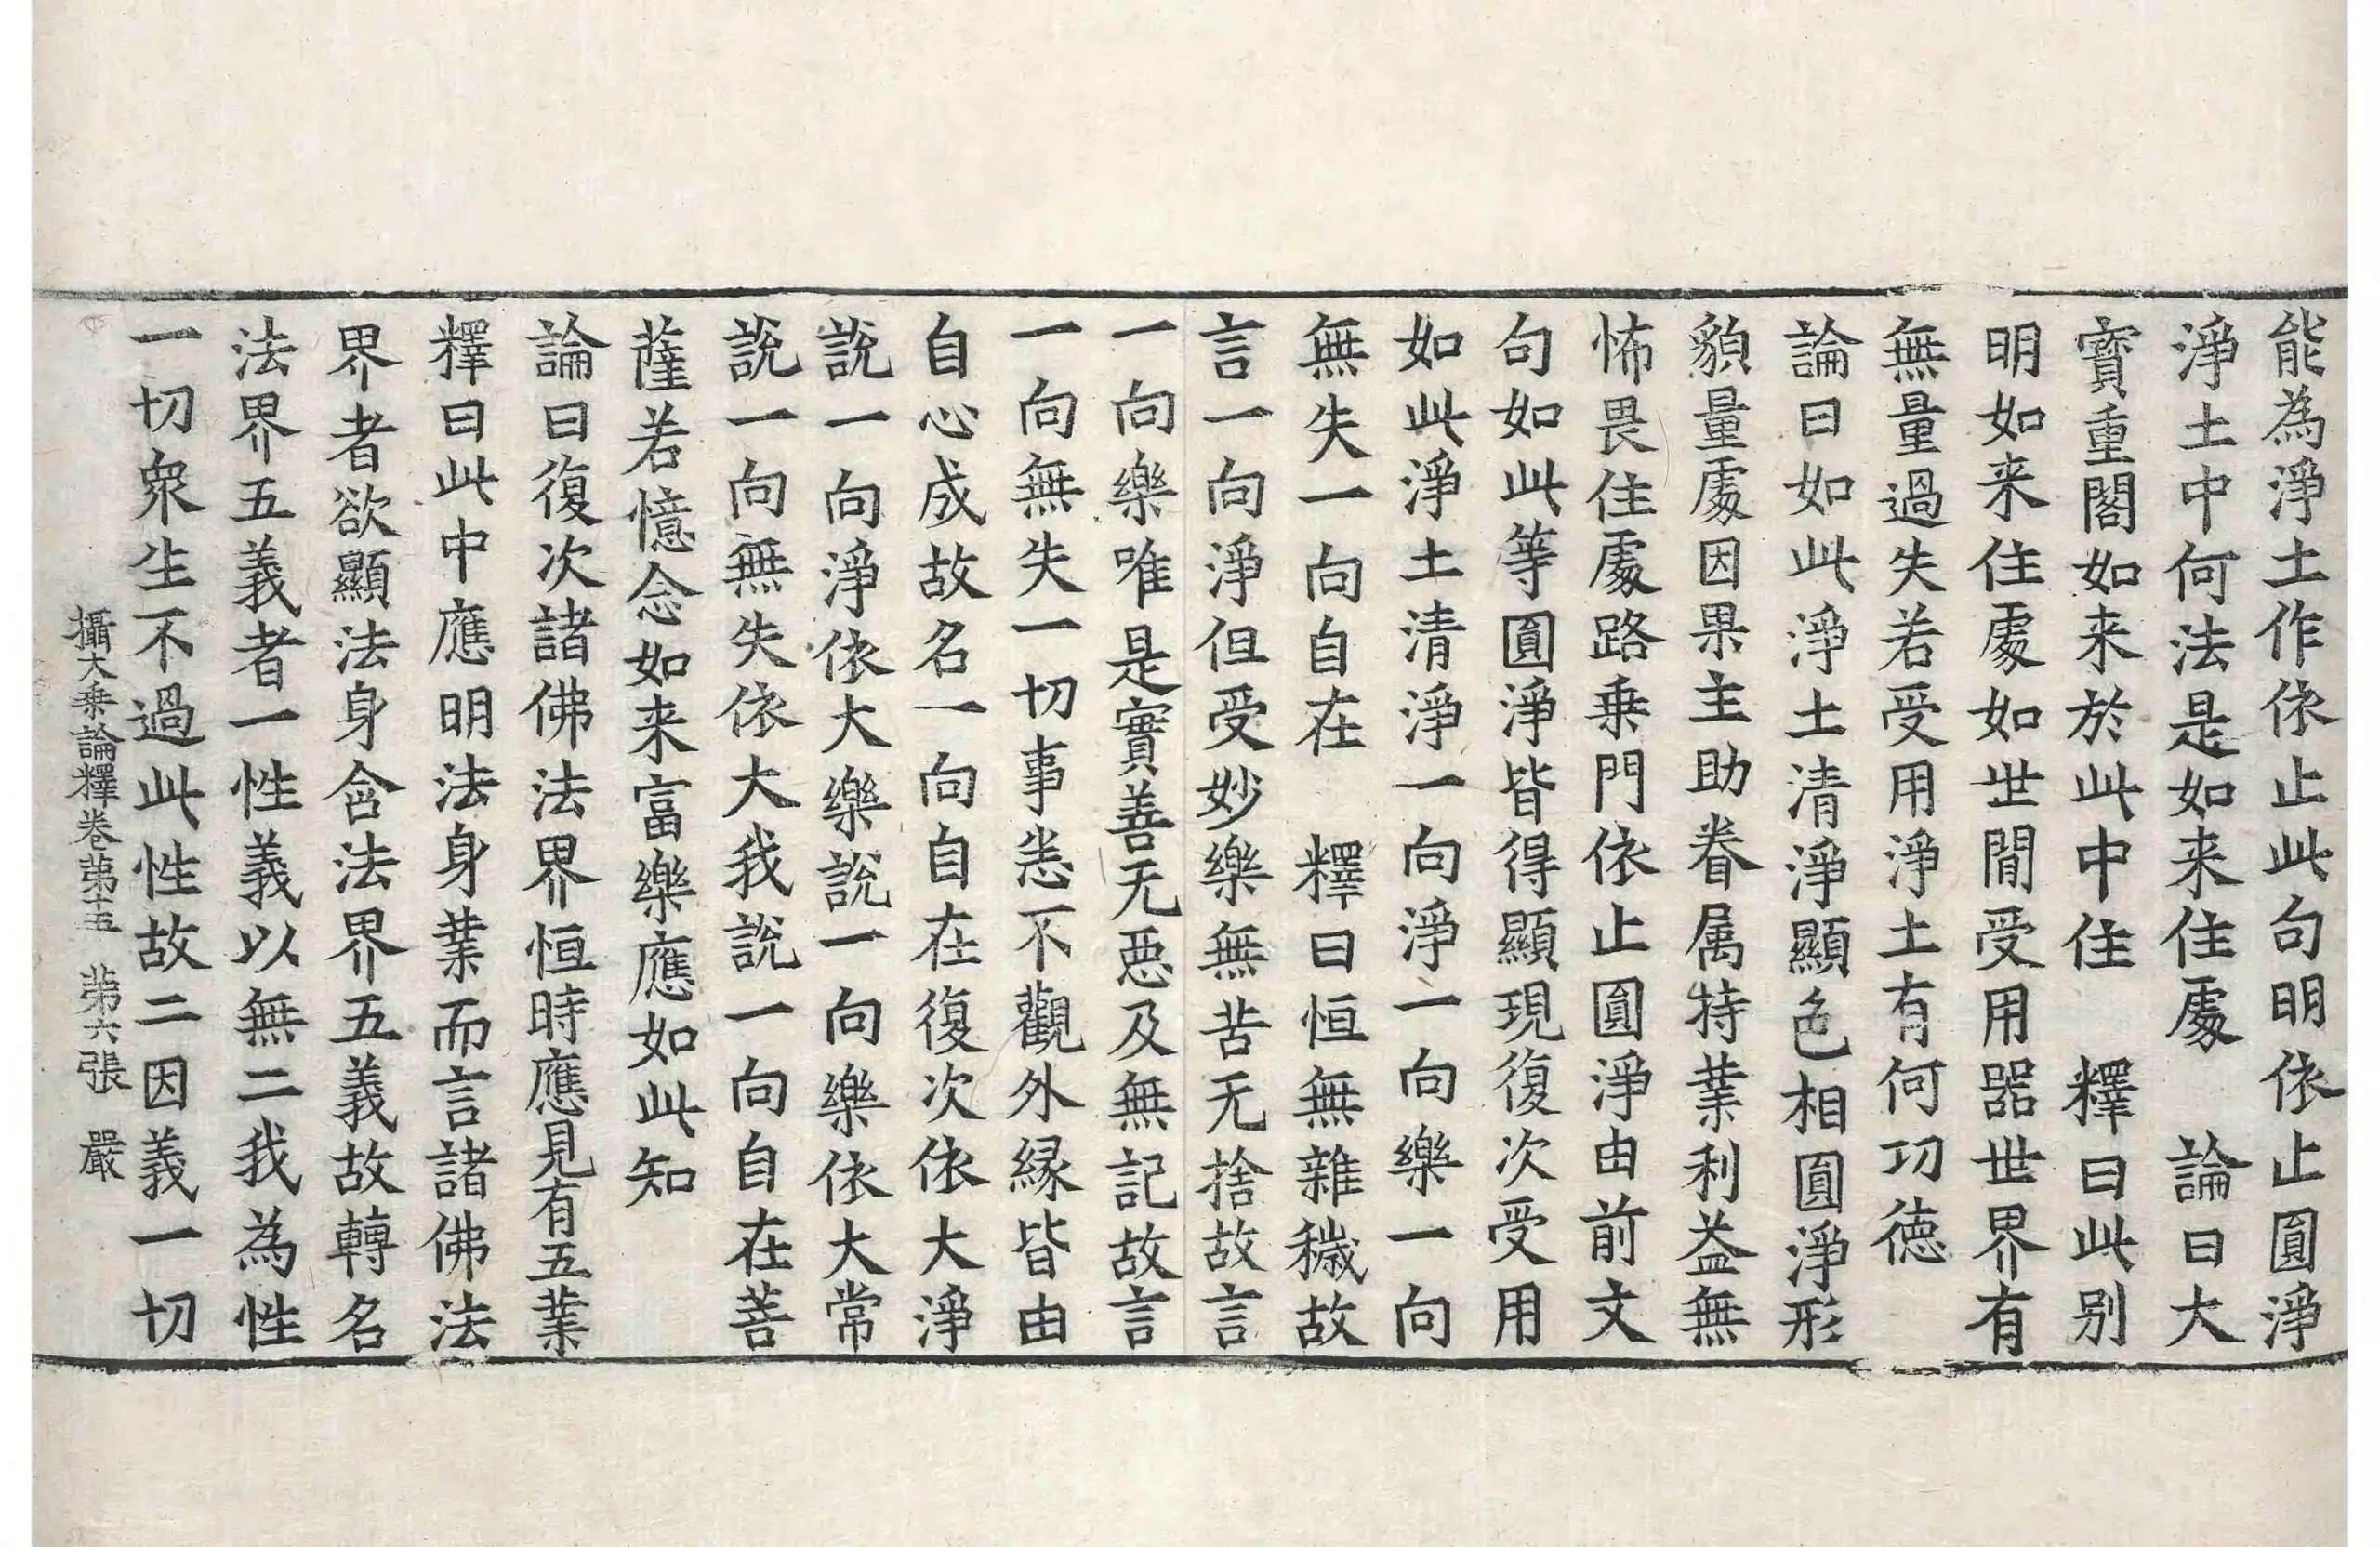 能為淨土作依止此句明依止圓淨
淨土中何法是如来住處　論曰大
寳重閣如来於此中住　釋曰此别
明如来住處如世間受用器世界有
無量過失若受用淨土有何功徳
論曰如此淨土清淨顯色相圓淨形
貌量處因果主助眷属特業利益無
怖畏住處路乗門依止圓淨由前文
句如此等圓淨皆得顯現復次受用
如此淨土清淨一向淨一向樂一向
無失一向自在　釋曰恒無雜穢故
言一向淨但受妙樂無苦无捨故言
一向樂唯是實善无惡及無記故言
一向無失一切事悉不觀外縁皆由
自心成故名一向自在復次依大淨
說一向淨依大樂說一向樂依大常
說一向無失依大我說一向自在菩
薩若憶念如来富樂應如此知
論曰復次諸佛法界恒時應見有五業
釋曰此中應明法身業而言諸佛法
界者欲顯法身含法界五義故轉名
法界五義者一性義以無二我為性
一切衆生不過此性故二因義一切
攝大乗論釋卷苐十五　苐六張　嚴